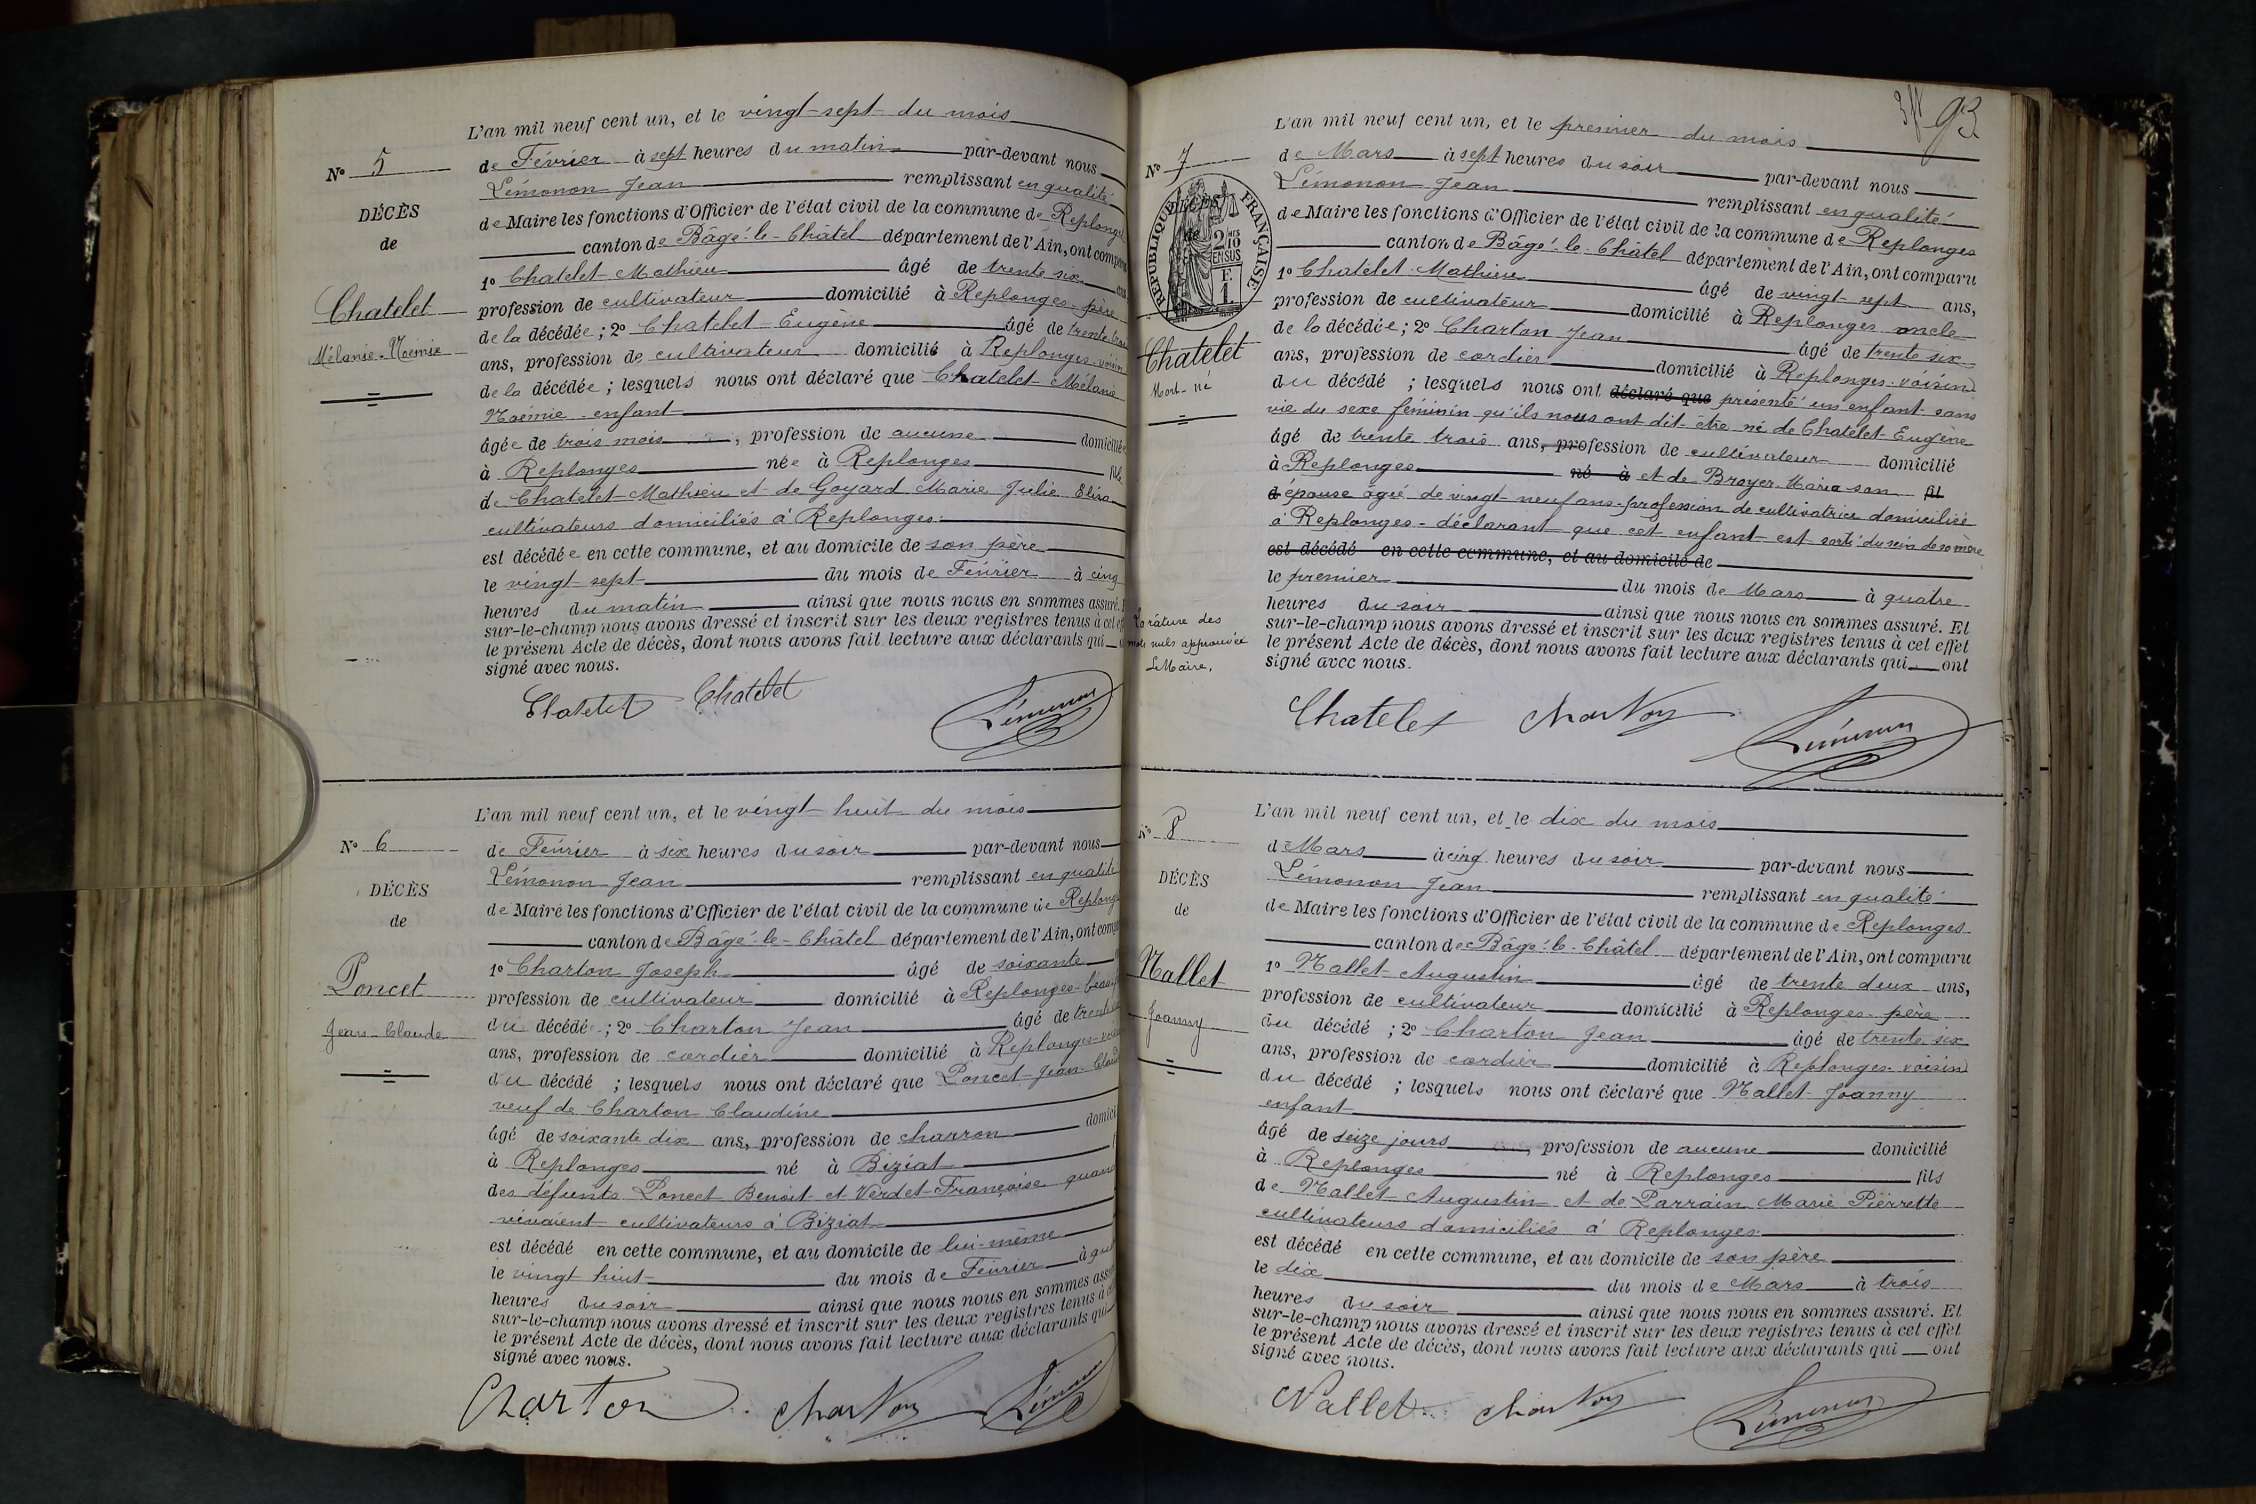 L'an mil neuf cent un, et le vingt-sept du mois
Nº 5
de Février à sept heures du matin par-devant nous
Lémonon Jean remplissant en qualité
DÉCÈS
de
de Maire les fonctions d'Officier de l'état civil de la commune de Replonges
canton de Bâgé-le-Châtel département de l'Ain, ont comparu
1º Chatelet Mathieu âgé de trente six ans
Chatelet
profession de cultivateur domicilié à Replonges père
Mélanie-Noémie
de la décédée ; 2º Chatelet Eugène âgé de trente trois
ans, profession de cultivateur domicilié à Replonges voisin
de la décédée ; lesquels nous ont déclaré que Chatelet Mélanie
Noémie enfant
âgée de trois mois, profession de aucune domiciliée
à Replonges née à Replonges fille
de Chatelet Mathieu et de Goyard Marie Julie Elisa
cultivateurs domiciliés à Replonges
est décédée en cette commune, et au domicile de son père
le vingt-sept du mois de Février à cinq
heures du matin ainsi que nous nous en sommes assuré. Et
sur-le-champ nous avons dressé et inscrit sur les deux registres tenus à cet effet
le présent Acte de décès, dont nous avons fait lecture aux déclarants qui ont
signé avec nous.
Chatelet Chatelet Lémonon
L'an mil neuf cent un, et le vingt huit du mois
Nº 6
de Février à six heures du soir par-devant nous
Lémonon Jean remplissant en qualité
DÉCÈS
de
de Maire les fonctions d'Officier de l'état civil de la commune de Replonges
canton de Bâgé-le-Châtel département de l'Ain, ont comparu
1º Charton Joseph âgé de soixante
Poncet
profession de cultivateur domicilié à Replonges
Jean-Claude
du décédé ; 2º Charton Jean âgé de trente six
ans, profession de cordier domicilié à Replonges voisin
du décédé ; lesquels nous ont déclaré que Poncet Jean-Claude
veuf de Charton Claudine
âgé de soixante dix ans, profession de charron domicilié
à Replonges né à Biziat
des défunts Poncet Benoit et Verdet Françoise quand
vivaient cultivateurs à Biziat
est décédé en cette commune, et au domicile de lui-même
le vingt huit du mois de Février à
heures du soir ainsi que nous nous en sommes assuré
sur-le-champ nous avons dressé et inscrit sur les deux registres tenus à cet
le présent Acte de décès, dont nous avons fait lecture aux déclarants qui
signé avec nous.
Charton Charton Lémonon
93
L'an mil neuf cent un, et le premier du mois
Nº 7
de Mars à sept heures du soir par-devant nous
Lémonon Jean remplissant en qualité
DÉCÈS
de
RÉPUBLIQUE FRANÇAISE
2/10 EN SUS
F. 1
de Maire les fonctions d'Officier de l'état civil de la commune de Replonges
canton de Bâgé-le-Châtel département de l'Ain, ont comparu
1º Chatelet Mathieu âgé de vingt-sept ans,
profession de cultivateur domicilié à Replonges oncle
Chatelet
Mort-né
de la décédée ; 2º Charton Jean âgé de trente six
ans, profession de cordier domicilié à Replonges voisin
du décédé ; lesquels nous ont déclaré que présenté un enfant sans
vie du sexe féminin qu'ils nous ont dit être né de Chatelet Eugène
âgé de trente trois ans, profession de cultivateur domicilié
à Replonges né à et de Broyer Maria son fil
d épouse âgée de vingt-neuf ans profession de cultivatrice domiciliée
à Replonges - déclarant que cet enfant est sorti du sein de sa mère
est décédé en cette commune, et au domicile de
le premier du mois de Mars à quatre
heures du soir ainsi que nous nous en sommes assuré. Et
sur-le-champ nous avons dressé et inscrit sur les deux registres tenus à cet effet
le présent Acte de décès, dont nous avons fait lecture aux déclarants qui ont
signé avec nous.
La râture des
mots nuls approuvée
Le Maire,
Chatelet Charton Lémonon
L'an mil neuf cent un, et le dix du mois
Nº 8
de Mars à cinq heures du soir par-devant nous
Lémonon Jean remplissant en qualité
DÉCÈS
de
de Maire les fonctions d'Officier de l'état civil de la commune de Replonges
canton de Bâgé-le-Châtel département de l'Ain, ont comparu
Nallet
1º Nallet Augustin âgé de trente deux ans,
profession de cultivateur domicilié à Replonges père
Joanny
du décédé ; 2º Charton Jean âgé de trente six
ans, profession de cordier domicilié à Replonges voisin
du décédé ; lesquels nous ont déclaré que Nallet Joanny
enfant
âgé de seize jours, profession de aucune domicilié
à Replonges né à Replonges fils
de Nallet Augustin et de Parrain Marie Pierrette
cultivateurs domiciliés à Replonges
est décédé en cette commune, et au domicile de son père
le dix du mois de Mars à trois
heures du soir ainsi que nous nous en sommes assuré. Et
sur-le-champ nous avons dressé et inscrit sur les deux registres tenus à cet effet
le présent Acte de décès, dont nous avons fait lecture aux déclarants qui ont
signé avec nous.
Nallet Charton Lémonon